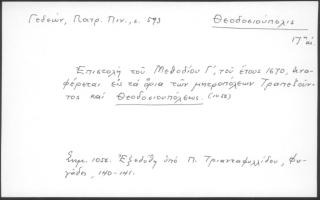 Γεδεών, Πατρ. Πιν., σ. 593
Θεοδοσιούπολις
17ος αἰ
Ἐπιστολὴ τοῦ Μεθοδίου Γ', τοῦ ἔτους 1670, ἀνα-
φέρεται εἰς τὰ ὅρια τῶν μητροπόλεων Τραπεζοῦν-
τος καὶ Θεοδοσιουπόλεως.
Σημ. 1058. Ἐξεδόθη ὑπὸ Π. Τριανταφυλλίδου, Φυ-
γάδες, 140-141.